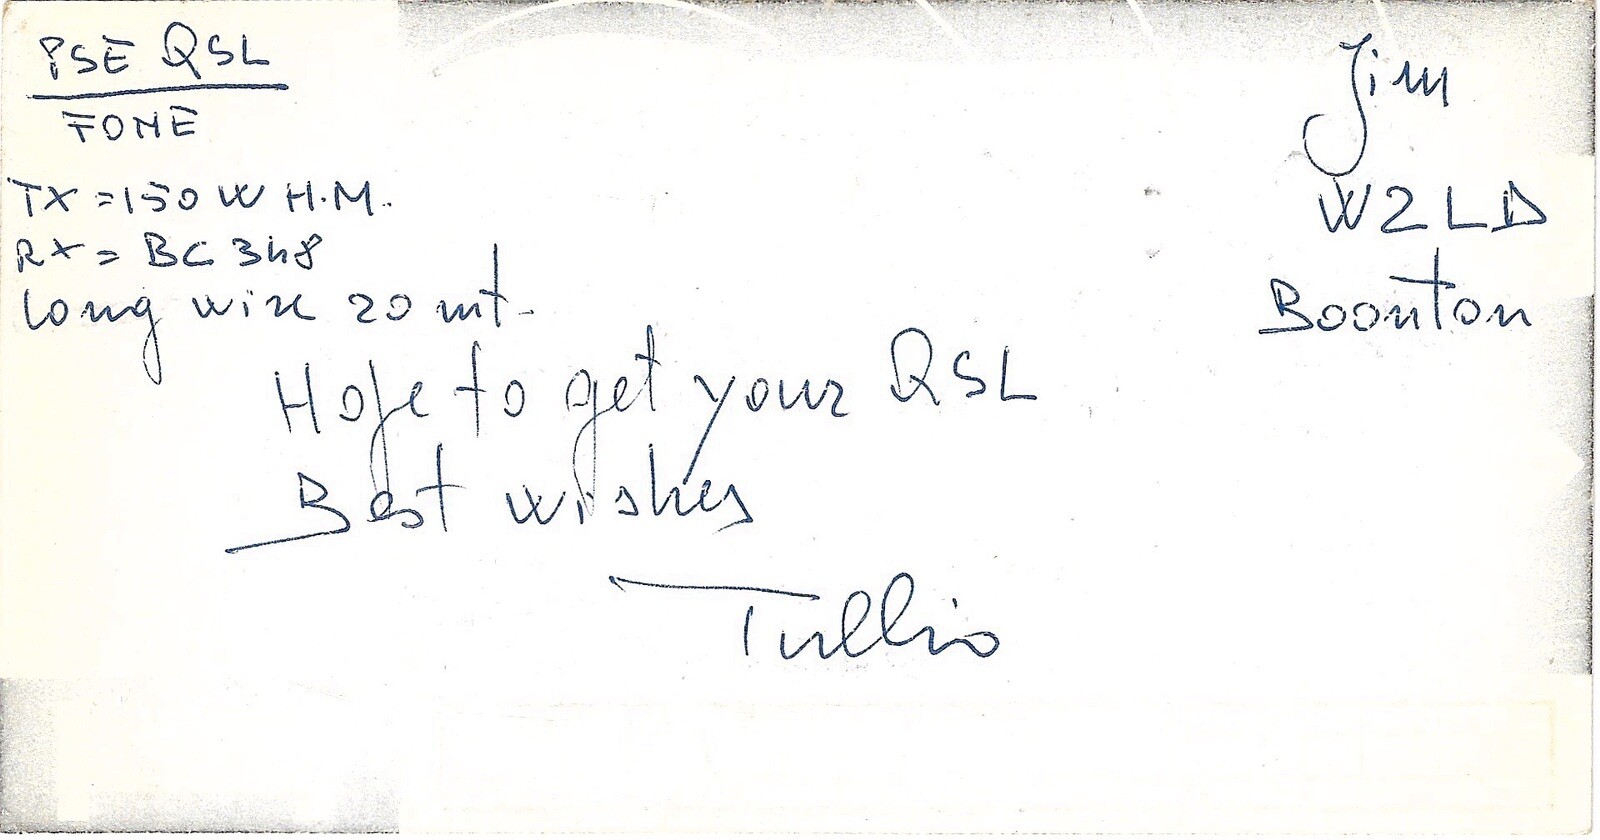 PSE QSL
FONE
TX = 150 W H.M.
RX = BC 348
long wire 20 mt.
Hope to get your QSL
Best wishes
Tullio
Jim
W2LD
Boonton